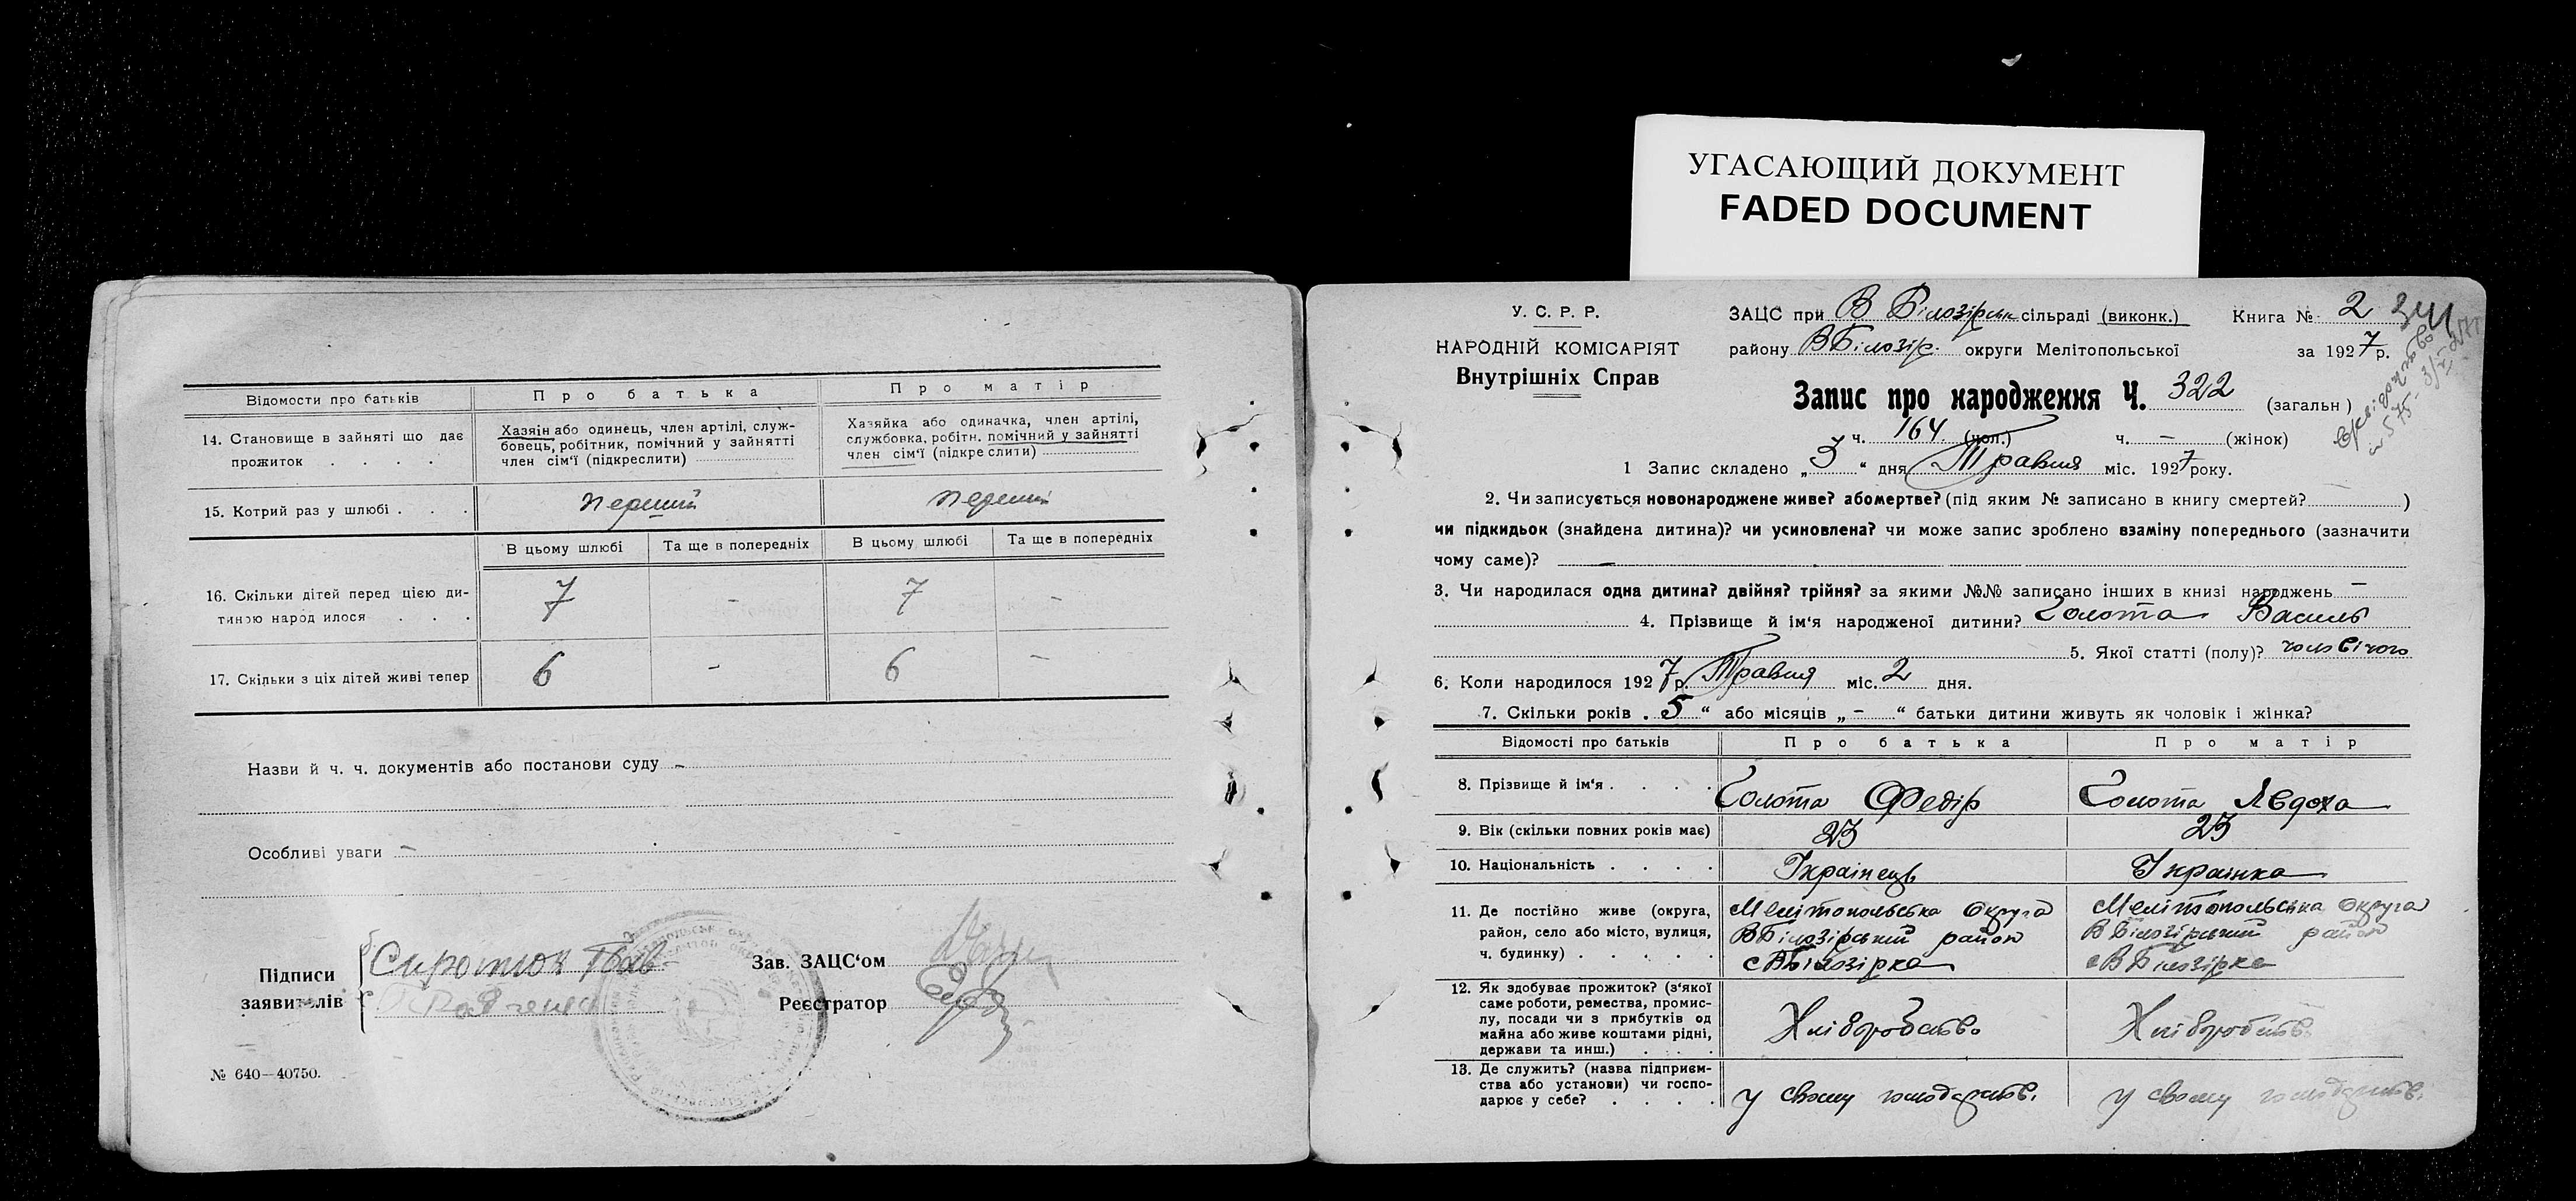 УГАСАЮЩИЙ ДОКУМЕНТ
FADED DOCUMENT
Відомости про батьків
Про батька
Про матір
14. Становище в зайняті що дає прожиток . . . .
Хазяін або одинець, член артілі, служ-
бовець, робітник, помічний у зайнятті
член сім'ї (підкреслити)
Хазяйка або одиначка, член артілі,
службовка, робітн. помічний у зайнятті
член сім'ї (підкреслити)
15. Котрий раз у шлюбі . . .
перший
перший
В цьому шлюбі
Та ще в попередніх
В цьому шлюбі
Та ще в попередніх
16. Скільки дітей перед цією ди-
тиною народилося . . .
7 - 7 -
17. Скільки з ціх дітей живі тепер
6 - 6 -
Назви й ч. ч. документів або постанови суду -
Особливі уваги -
Підписи
заявителів
Зав. ЗАЦС'ом
Реєстратор
№ 640—40750.
У. С. Р. Р.
НАРОДНІЙ КОМІСАРІЯТ
Внутрішніх Справ
ЗАЦС при В Білозірськ сільраді (виконк.) Книга № 2
району ВБілозір. округи Мелітопольської за 1927 р.
Запис про народження Ч. 322 (загальн)
ч. 164. (чол.) ч. - (жінок)
1 Запис складено „3“ дня Травня міс. 1927 року.
2. Чи записується новонароджене живе? або мертве? (під яким № записано в книгу смертей? )
чи підкидьок (знайдена дитина)? чи усиновлена? чи може запис зроблено взаміну попереднього (зазначити
чому саме)? -
3. Чи народилася одна дитина? двійня? трійня? за якими №№ записано інших в книзі народжень -
4. Прізвище й ім'я народженої дитини? Голота Василь
5. Якої статті (полу)? чоловічого
6. Коли народилося 1927 р. Травня міс. 2 дня.
7. Скільки років „5“ або місяців „-“ батьки дитини живуть як чоловік і жінка?
Відомості про батьків
Про батька
Про матір
8. Прізвище й ім'я . . . .
Голота Федір
Голота Явдоха
9. Вік (скільки повних років має)
23
23
10. Національність . . . .
Українець
Українка
11. Де постійно живе (округа,
район, село або місто, вулиця,
ч. будинку) . . . . .
Мелітопольська округа
ВБілозірський район
с ВБілозірка
Мелітопольська округа
ВБілозірський район
с ВБілозірка
12. Як здобуває прожиток? (з'якої
саме роботи, ремества, промис-
лу, посади чи з прибутків од
майна або живе коштами рідні,
держави та инш.) . . . .
Хліборобство
Хліборобство
13. Де служить? (назва підприєм-
ства або установи) чи госпо-
дарює у себе? . . . .
у своєму господарств.
у своєму господарств.